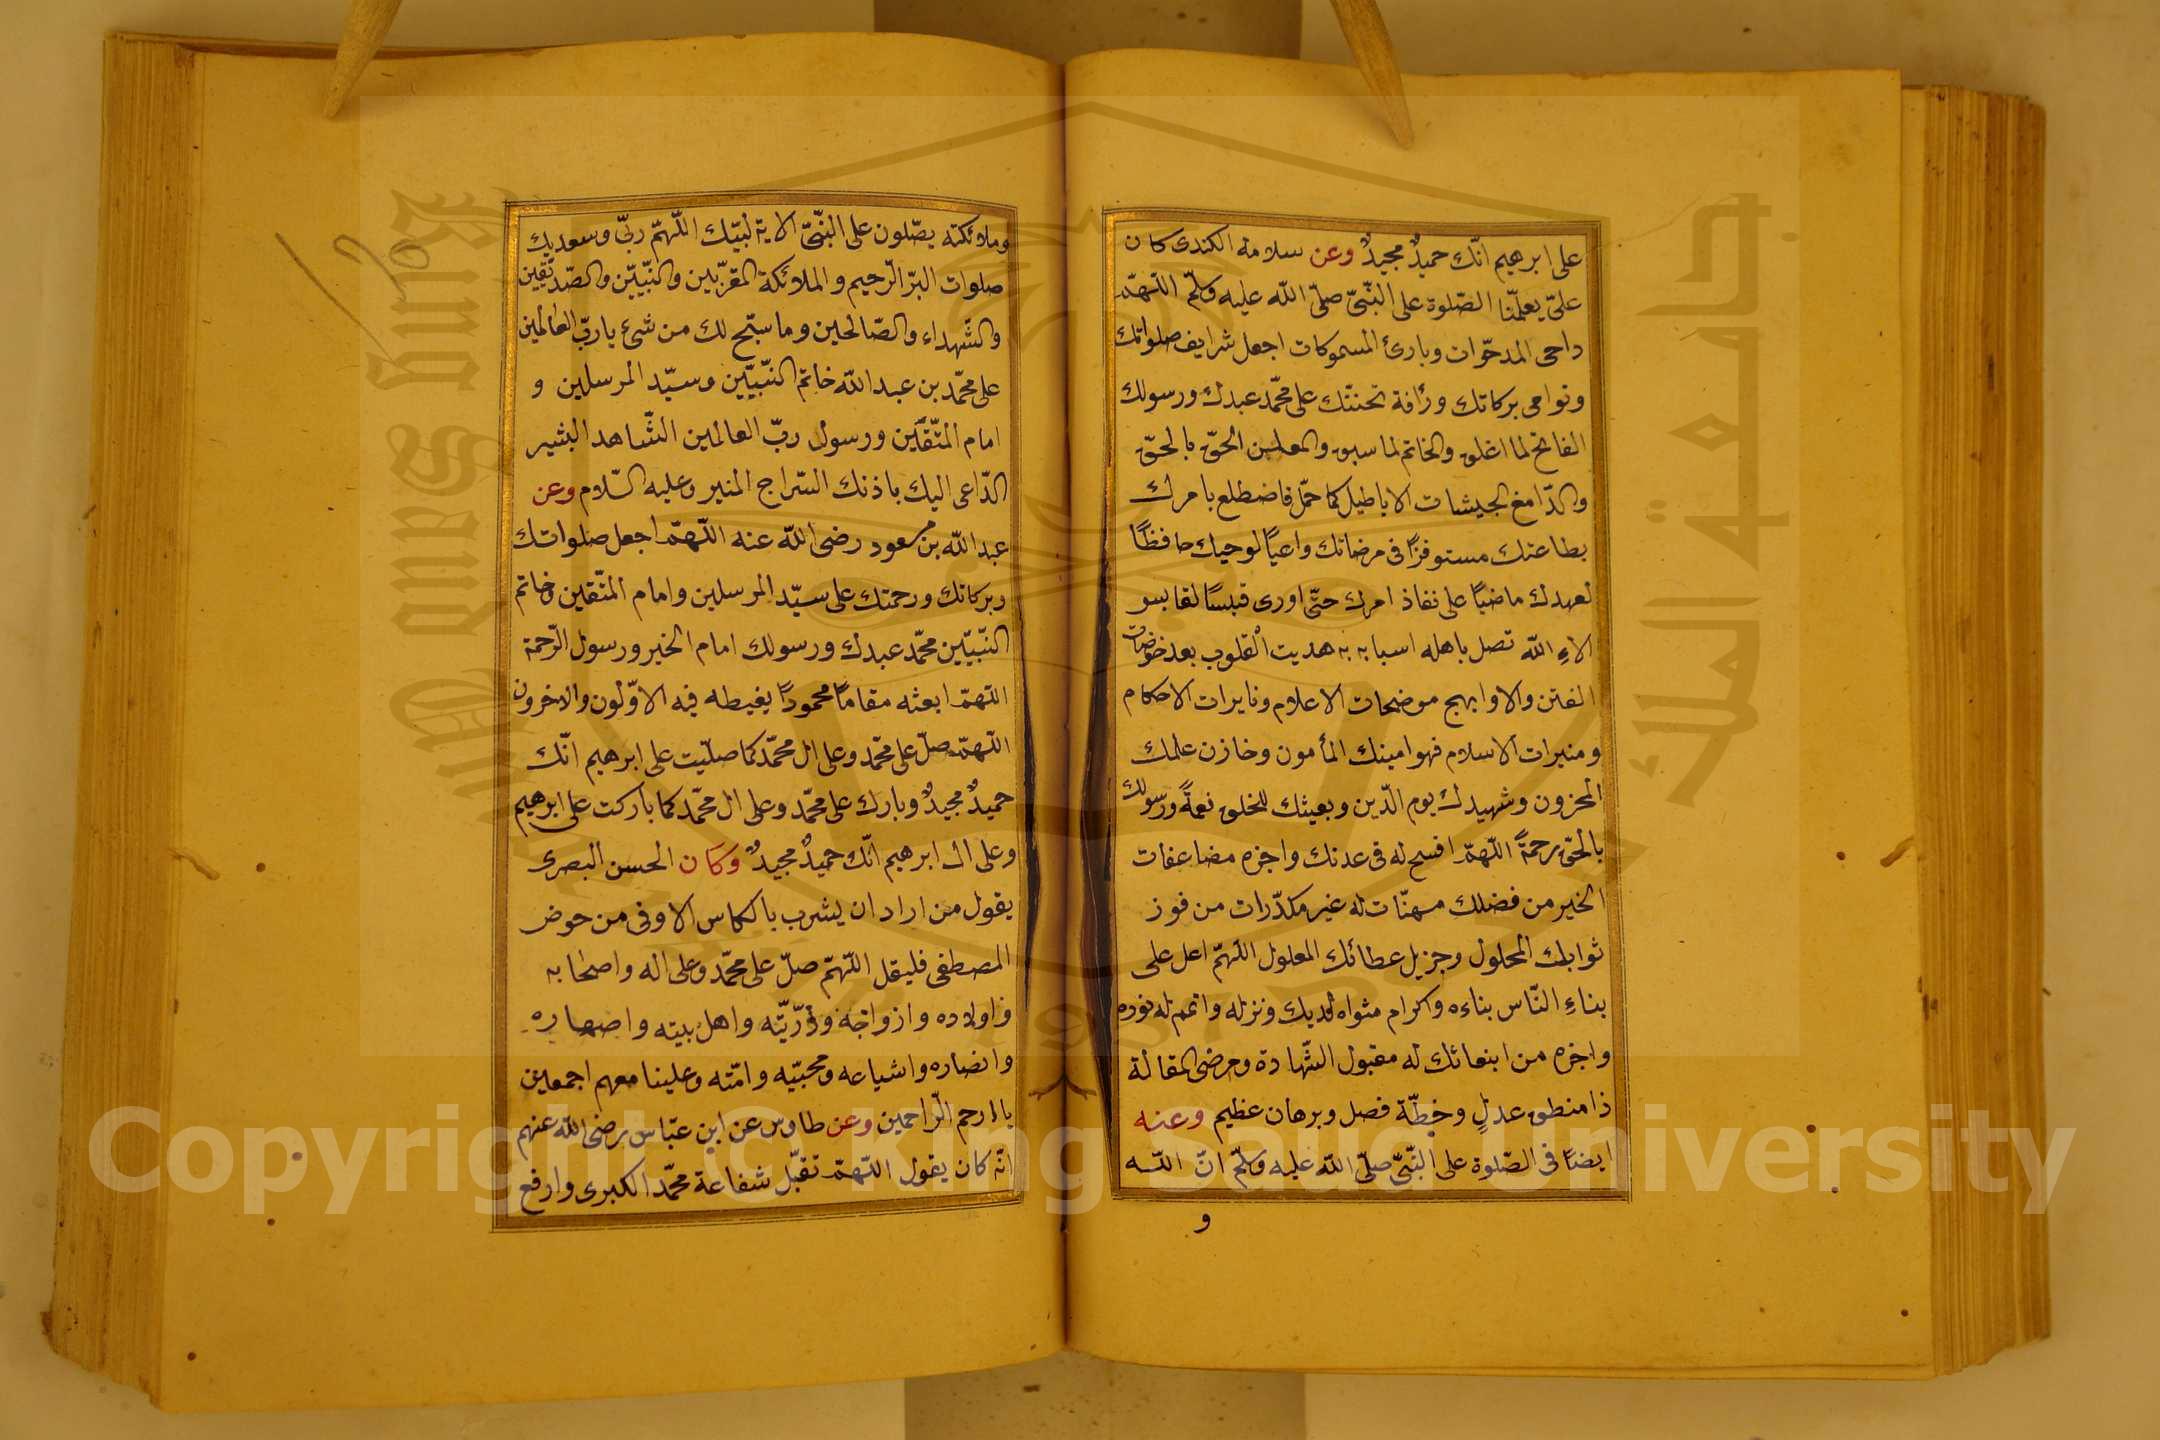 على ابرهيم انّك حميدٌ مجيدٌ وعن سلامة الكندى كان
علىّ يعلّمنا الصّلوة على النّبىّ صلّى اللّه عليه وسلّم اللّهمّ
داحى المدحوّات وبارئ المسموكات اجعل شرايف صلواتك
ونوامى بركاتك ورأفة تحنّنك على محمّد عبدك ورسولك
الفاتح لما اغلق والخاتم لما سبق والمعلن الحقّ بالحقّ
والدّامغ لجيشات الاباطيل كما حمّل فاضطلع بامرك
بطاعتك مستوفزًا فى مرضاتك واعيًا لوحيك حافظًا
لعهدك ماضيًا على نفاذ امرك حتّى اورى قبسًا لقابس
الاءِ اللّه تصل باهله اسبابه به هديت القلوب بعد خوضات
الفتن والا وابهج موضحات الاعلام ونايرات الاحكام
ومنيرات الاسلام فهو امينك المأمون وخازن علمك
المخزون وشهيدك يوم الدّين وبعيثك للخلق نعمةً ورسولك
بالحقّ رحمةً اللّهمّ افسح له فى عدنك واجزه مضاعفات
الخير من فضلك مهنّات له غير مكدّرات من فوز
ثوابك المحلول وجزيل عطائك المعلول اللّهمّ اعل على
بناءِ النّاس بناءه واكرام مثواه لديك ونزله واتمم له نوره
واجزه من ابتعاثك له مقبول الشّهادة ومرضى المقالة
ذا منطق عدلٍ وخطّة فصل وبرهان عظيم وعنه
ايضًا فى الصّلوة على النّبىّ صلّى اللّه عليه وسلّم انّ اللّه
و
وملائكته يصّلون على النّبىّ الاية لبّيك اللّهمّ ربّى وسعديك
صلوات البرّ الرّحيم والملائكة المقرّبين والنّبيّين والصّدّيقين
والشّهداء والصّالحين وما سبّح لك من شئ يا ربّ العالمين
على محمّد بن عبد اللّه خاتم النّبيّين وسيّد المرسلين و
امام المتّقين ورسول ربّ العالمين الشّاهد البشير
الدّاعى اليك باذنك السّراج المنير وعليه السّلام وعن
عبد اللّه بن مسعود رضى اللّه عنه اللّهمّ اجعل صلواتك
وبركاتك ورحمتك على سيّد المرسلين وامام المتّقين وخاتم
النّبيّين محمّد عبدك ورسولك امام الخير ورسول الرّحمة
اللّهمّ ابعثه مقامًا محمودًا يغبطه فيه الاوّلون والاخرون
اللّهمّ صلّ على محمّد وعلى ال محمّد كما صلّيت على ابرهيم انّك
حميدٌ مجيدٌ وبارك على محمّد وعلى ال محمّد كما باركت على ابرهيم
وعلى ال ابرهيم انّك حميدٌ مجيدٌ وكان الحسن البصرى
يقول من اراد ان يشرب بالكاس الاوفى من حوض
المصطفى فليقل اللّهمّ صلّ على محمّد وعلى اله واصحابه
واولاده وازواجه وذرّيّته واهل بيته واصهاره
وانصاره واشياعه ومحبّيه وامّته وعلينا معهم اجمعين
يا ارحم الرّاحمين وعن طاوس عن ابن عبّاس رضى اللّه عنهم
انّه كان يقول اللّهمّ تقبّل شفاعة محمّد الكبرى وارفع
جامعة الملك سعود
King Saud University
Copyright © King Saud University